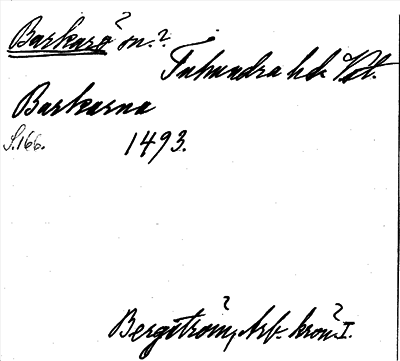 Barkarö sn.?
Tuhundra hd. Vstl.
Barkarna
S.166. 1493.
Bergström, Arb. krön. I.